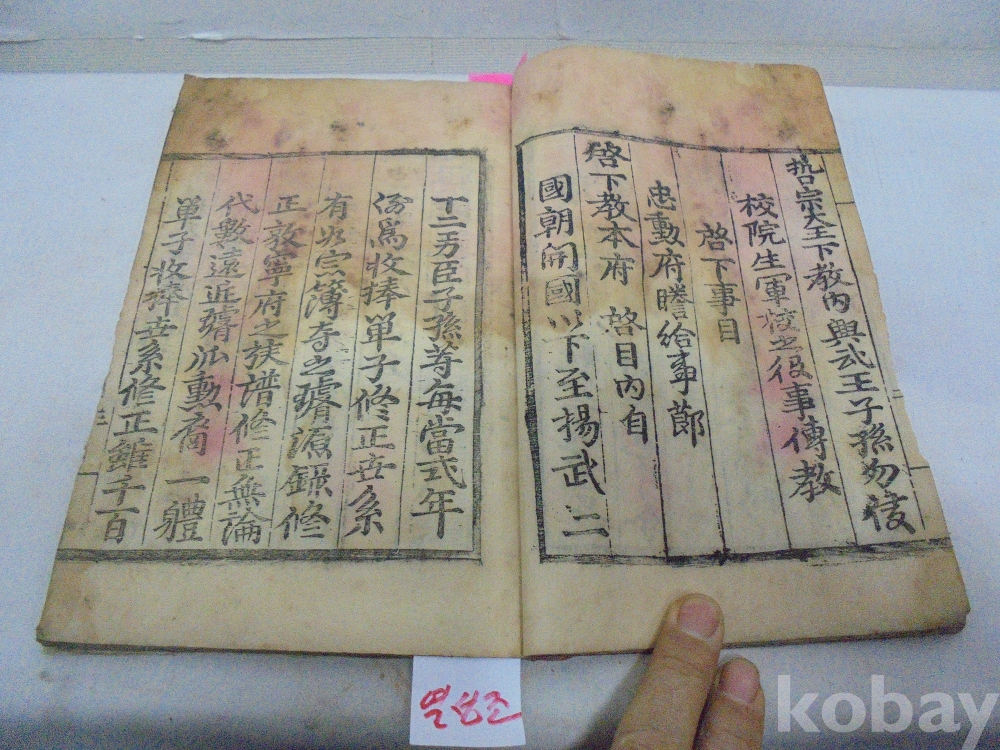 哲宗大王下教內興武王子孫勿侵
校院生軍校之役事傳教
啓下事目
忠勳府謄給事節
啓下教本府 啓目內自
國朝開國以下至揚武二
十二功臣子孫等每當式年
例爲收捧單子修正世系
有此官簿寺之璿源錄修
正敦寧府之族譜修正無論
代數遠近璿派勳裔一軆
單子收捧世系修正雖千百
二
三
열성조
kobay